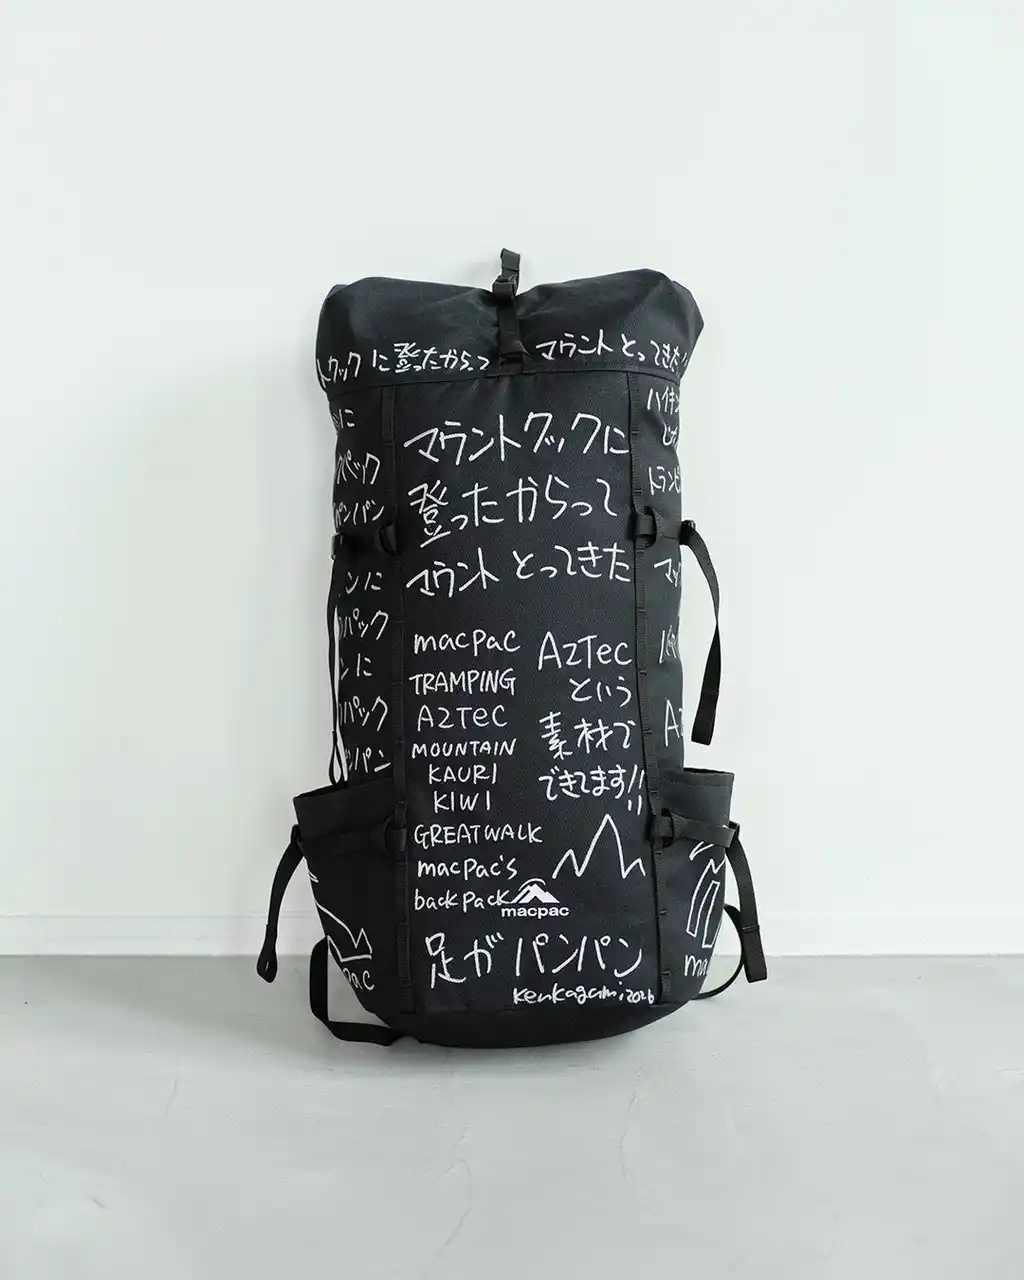 クック に登ったからって マウント とってきた!!
マウントクックに
登ったからって
マウント とってきた
macpac
TRAMPING
AZTEC
MOUNTAIN
KAURI
KIWI
GREATWALK
macpac's
backpack
AZTEC
という
素材で
できてます!!
macpac
足が パンパン
kenkagami 2026
に
パック
パンパン
ンに
パック
ンに
パック
パン
pac
ハイキン
じゃ
トランピ
マッ
バ
AZ
ma